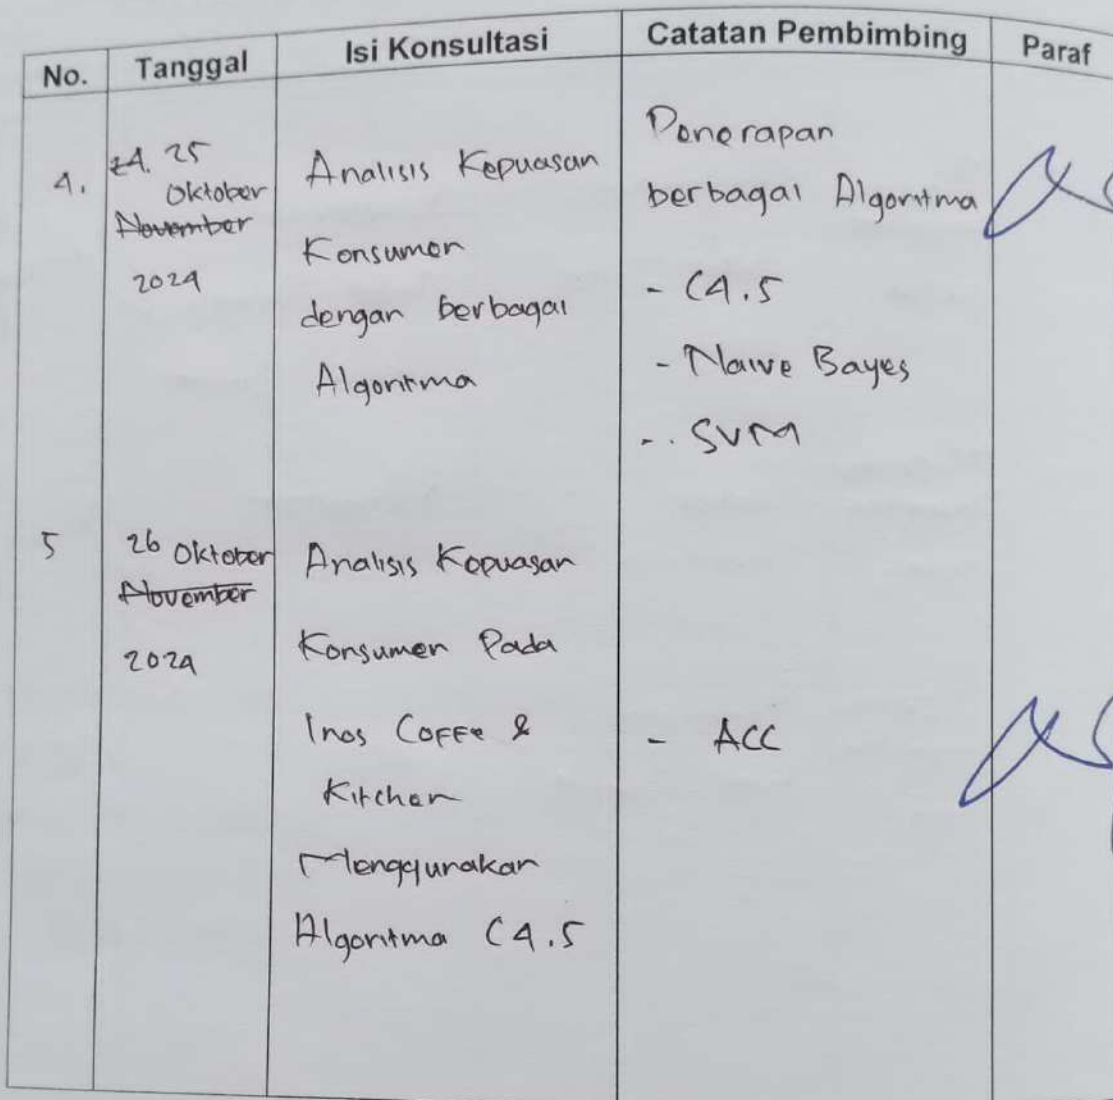 No. Tanggal Isi Konsultasi Catatan Pembimbing Paraf
4.
24. 25
Oktober
November
2024
Analisis Kepuasan
Konsumen
dengan berbagai
Algoritma
Penerapan
berbagai Algoritma
- C4.5
- Naive Bayes
- SVM
5
26 Oktober
November
2024
Analisis Kepuasan
Konsumen Pada
Inos Coffe &
Kitchen
Menggunakan
Algoritma C4.5
- ACC